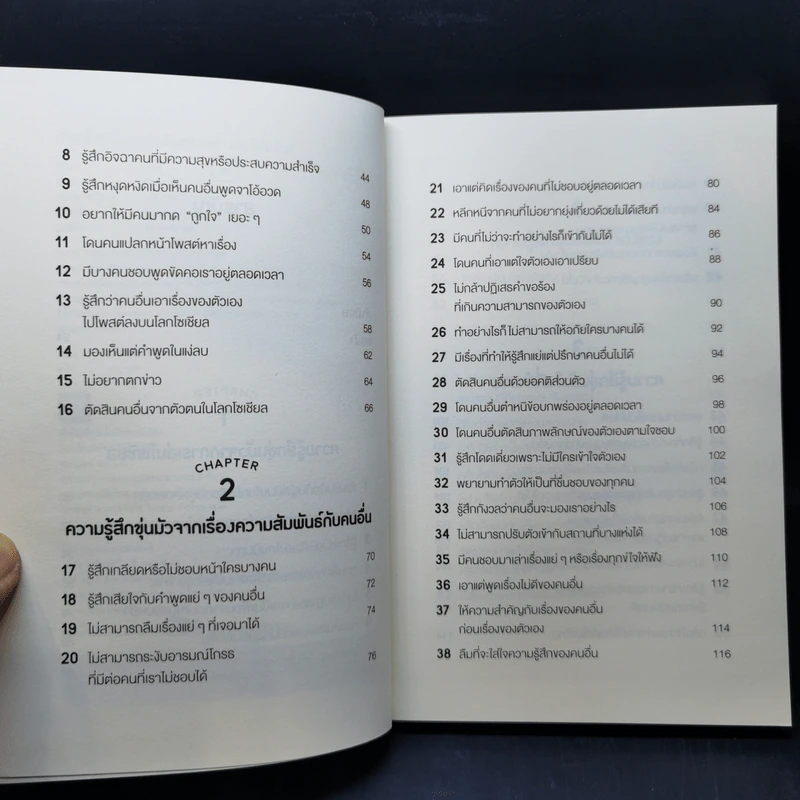 8 รู้สึกอิจฉาคนที่มีความสุขหรือประสบความสำเร็จ 44
9 รู้สึกหงุดหงิดเมื่อเห็นคนอื่นพูดจาโอ้อวด 48
10 อยากให้มีคนมากด “ถูกใจ” เยอะ ๆ 50
11 โดนคนแปลกหน้าโพสต์หาเรื่อง 54
12 มีบางคนชอบพูดขัดคอเราอยู่ตลอดเวลา 56
13 รู้สึกว่าคนอื่นเอาเรื่องของตัวเอง
ไปโพสต์ลงบนโลกโซเชียล 58
14 มองเห็นแต่คำพูดในแง่ลบ 62
15 ไม่อยากตกข่าว 64
16 ตัดสินคนอื่นจากตัวตนในโลกโซเชียล 66
CHAPTER
2
ความรู้สึกขุ่นมัวจากเรื่องความสัมพันธ์กับคนอื่น
17 รู้สึกเกลียดหรือไม่ชอบหน้าใครบางคน 70
18 รู้สึกเสียใจกับคำพูดแย่ ๆ ของคนอื่น 72
19 ไม่สามารถลืมเรื่องแย่ ๆ ที่เจอมาได้ 74
20 ไม่สามารถระงับอารมณ์โกรธ
ที่มีต่อคนที่เราไม่ชอบได้ 76
21 เอาแต่คิดเรื่องของคนที่ไม่ชอบอยู่ตลอดเวลา 80
22 หลีกหนีจากคนที่ไม่อยากยุ่งเกี่ยวด้วยไม่ได้เสียที 84
23 มีคนที่ไม่ว่าจะทำอย่างไรก็เข้ากันไม่ได้ 86
24 โดนคนที่เอาแต่ใจตัวเองเอาเปรียบ 88
25 ไม่กล้าปฏิเสธคำขอร้อง
ที่เกินความสามารถของตัวเอง 90
26 ทำอย่างไรก็ไม่สามารถให้อภัยใครบางคนได้ 92
27 มีเรื่องที่ทำให้รู้สึกแย่แต่ปรึกษาคนอื่นไม่ได้ 94
28 ตัดสินคนอื่นด้วยอคติส่วนตัว 96
29 โดนคนอื่นตำหนิข้อบกพร่องอยู่ตลอดเวลา 98
30 โดนคนอื่นตัดสินภาพลักษณ์ของตัวเองตามใจชอบ 100
31 รู้สึกโดดเดี่ยวเพราะไม่มีใครเข้าใจตัวเอง 102
32 พยายามทำตัวให้เป็นที่ชื่นชอบของทุกคน 104
33 รู้สึกกังวลว่าคนอื่นจะมองเราอย่างไร 106
34 ไม่สามารถปรับตัวเข้ากับสถานที่บางแห่งได้ 108
35 มีคนชอบมาเล่าเรื่องแย่ ๆ หรือเรื่องทุกข์ใจให้ฟัง 110
36 เอาแต่พูดเรื่องไม่ดีของคนอื่น 112
37 ให้ความสำคัญกับเรื่องของคนอื่น
ก่อนเรื่องของตัวเอง 114
38 ลืมที่จะใส่ใจความรู้สึกของคนอื่น 116